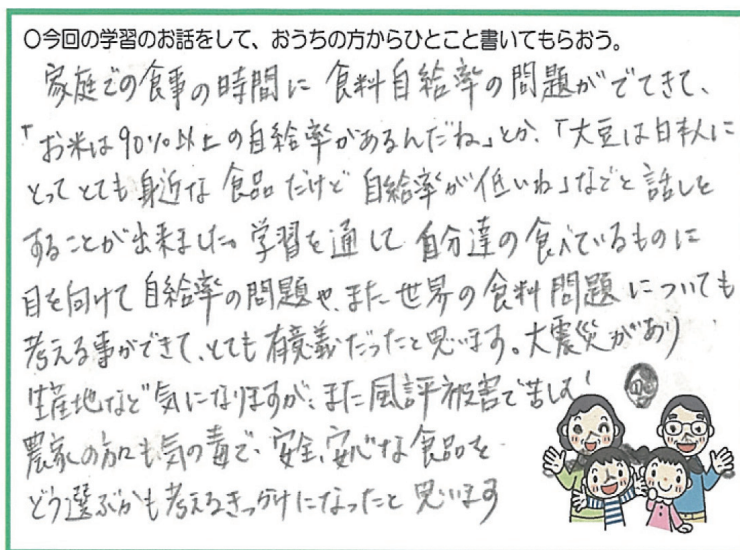 ○今回の学習のお話をして、おうちの方からひとこと書いてもらおう。
家庭での食事の時間に食料自給率の問題がでてきて、
「お米は90%以上の自給率があるんだね」とか、「大豆は日本人に
とってとても身近な食品だけど自給率が低いね」などと話しを
することが出来ました。学習を通して自分達の食べているものに
目を向けて自給率の問題や、また世界の食料問題についても
考える事ができて、とても有意義だったと思います。大震災があり
生産地など気になりますが、また風評被害で苦しむ
農家の方にも気の毒で、安全、安心な食品を
どう選ぶかも考えるきっかけになったと思います